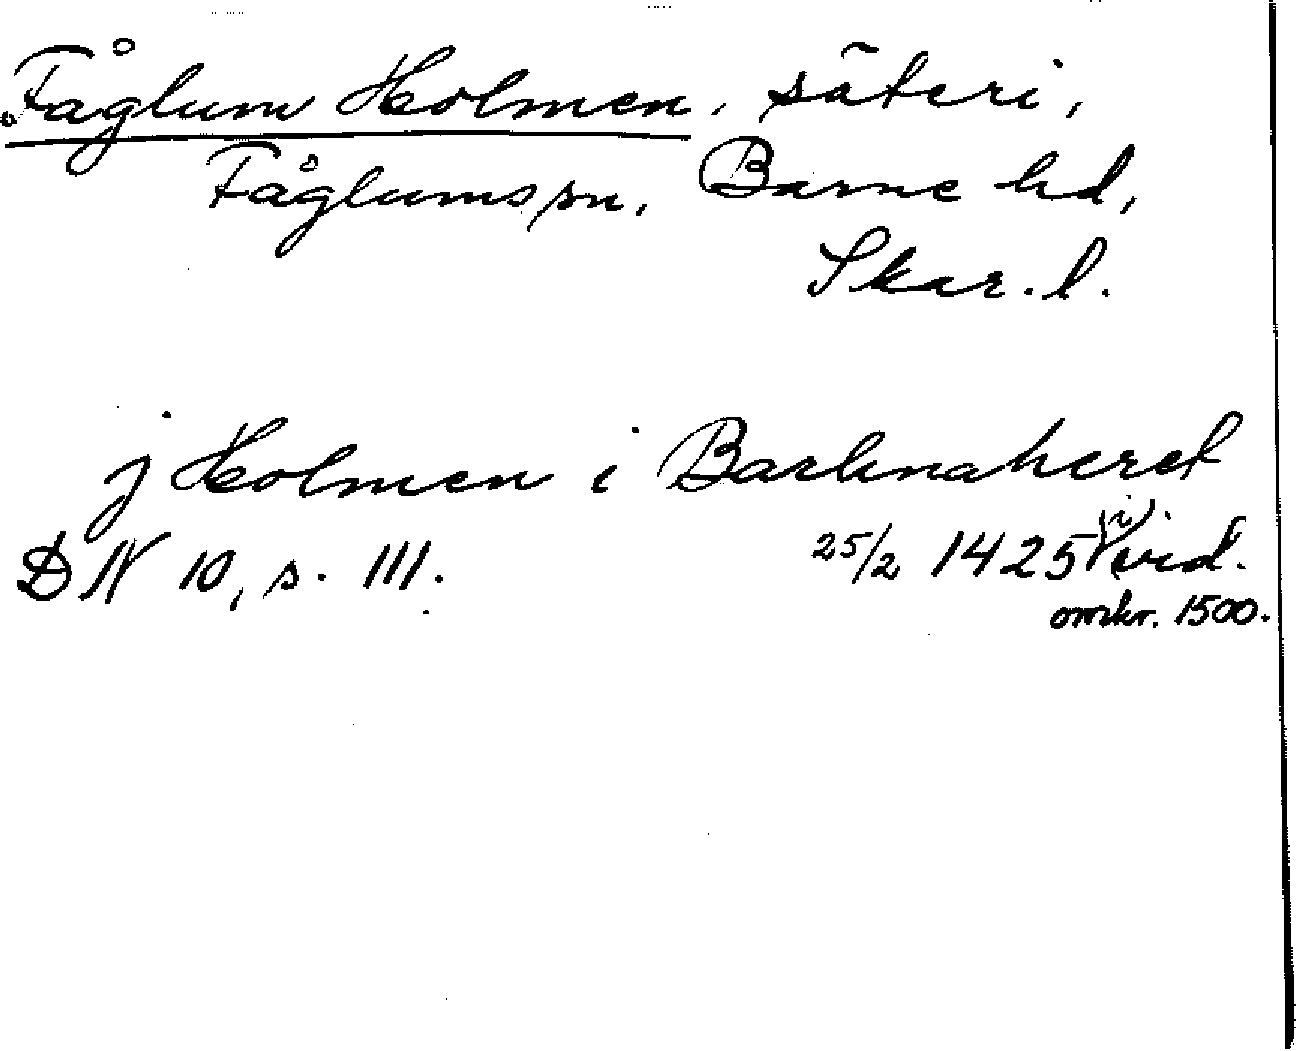 Fåglum Holmen, säteri,
Fåglums sn, Barne hd,
Skar. l.
j Holmen i Barknaheret
DN 10, s. 111. 25/2 1425 (i) vid.
omkr. 1500.